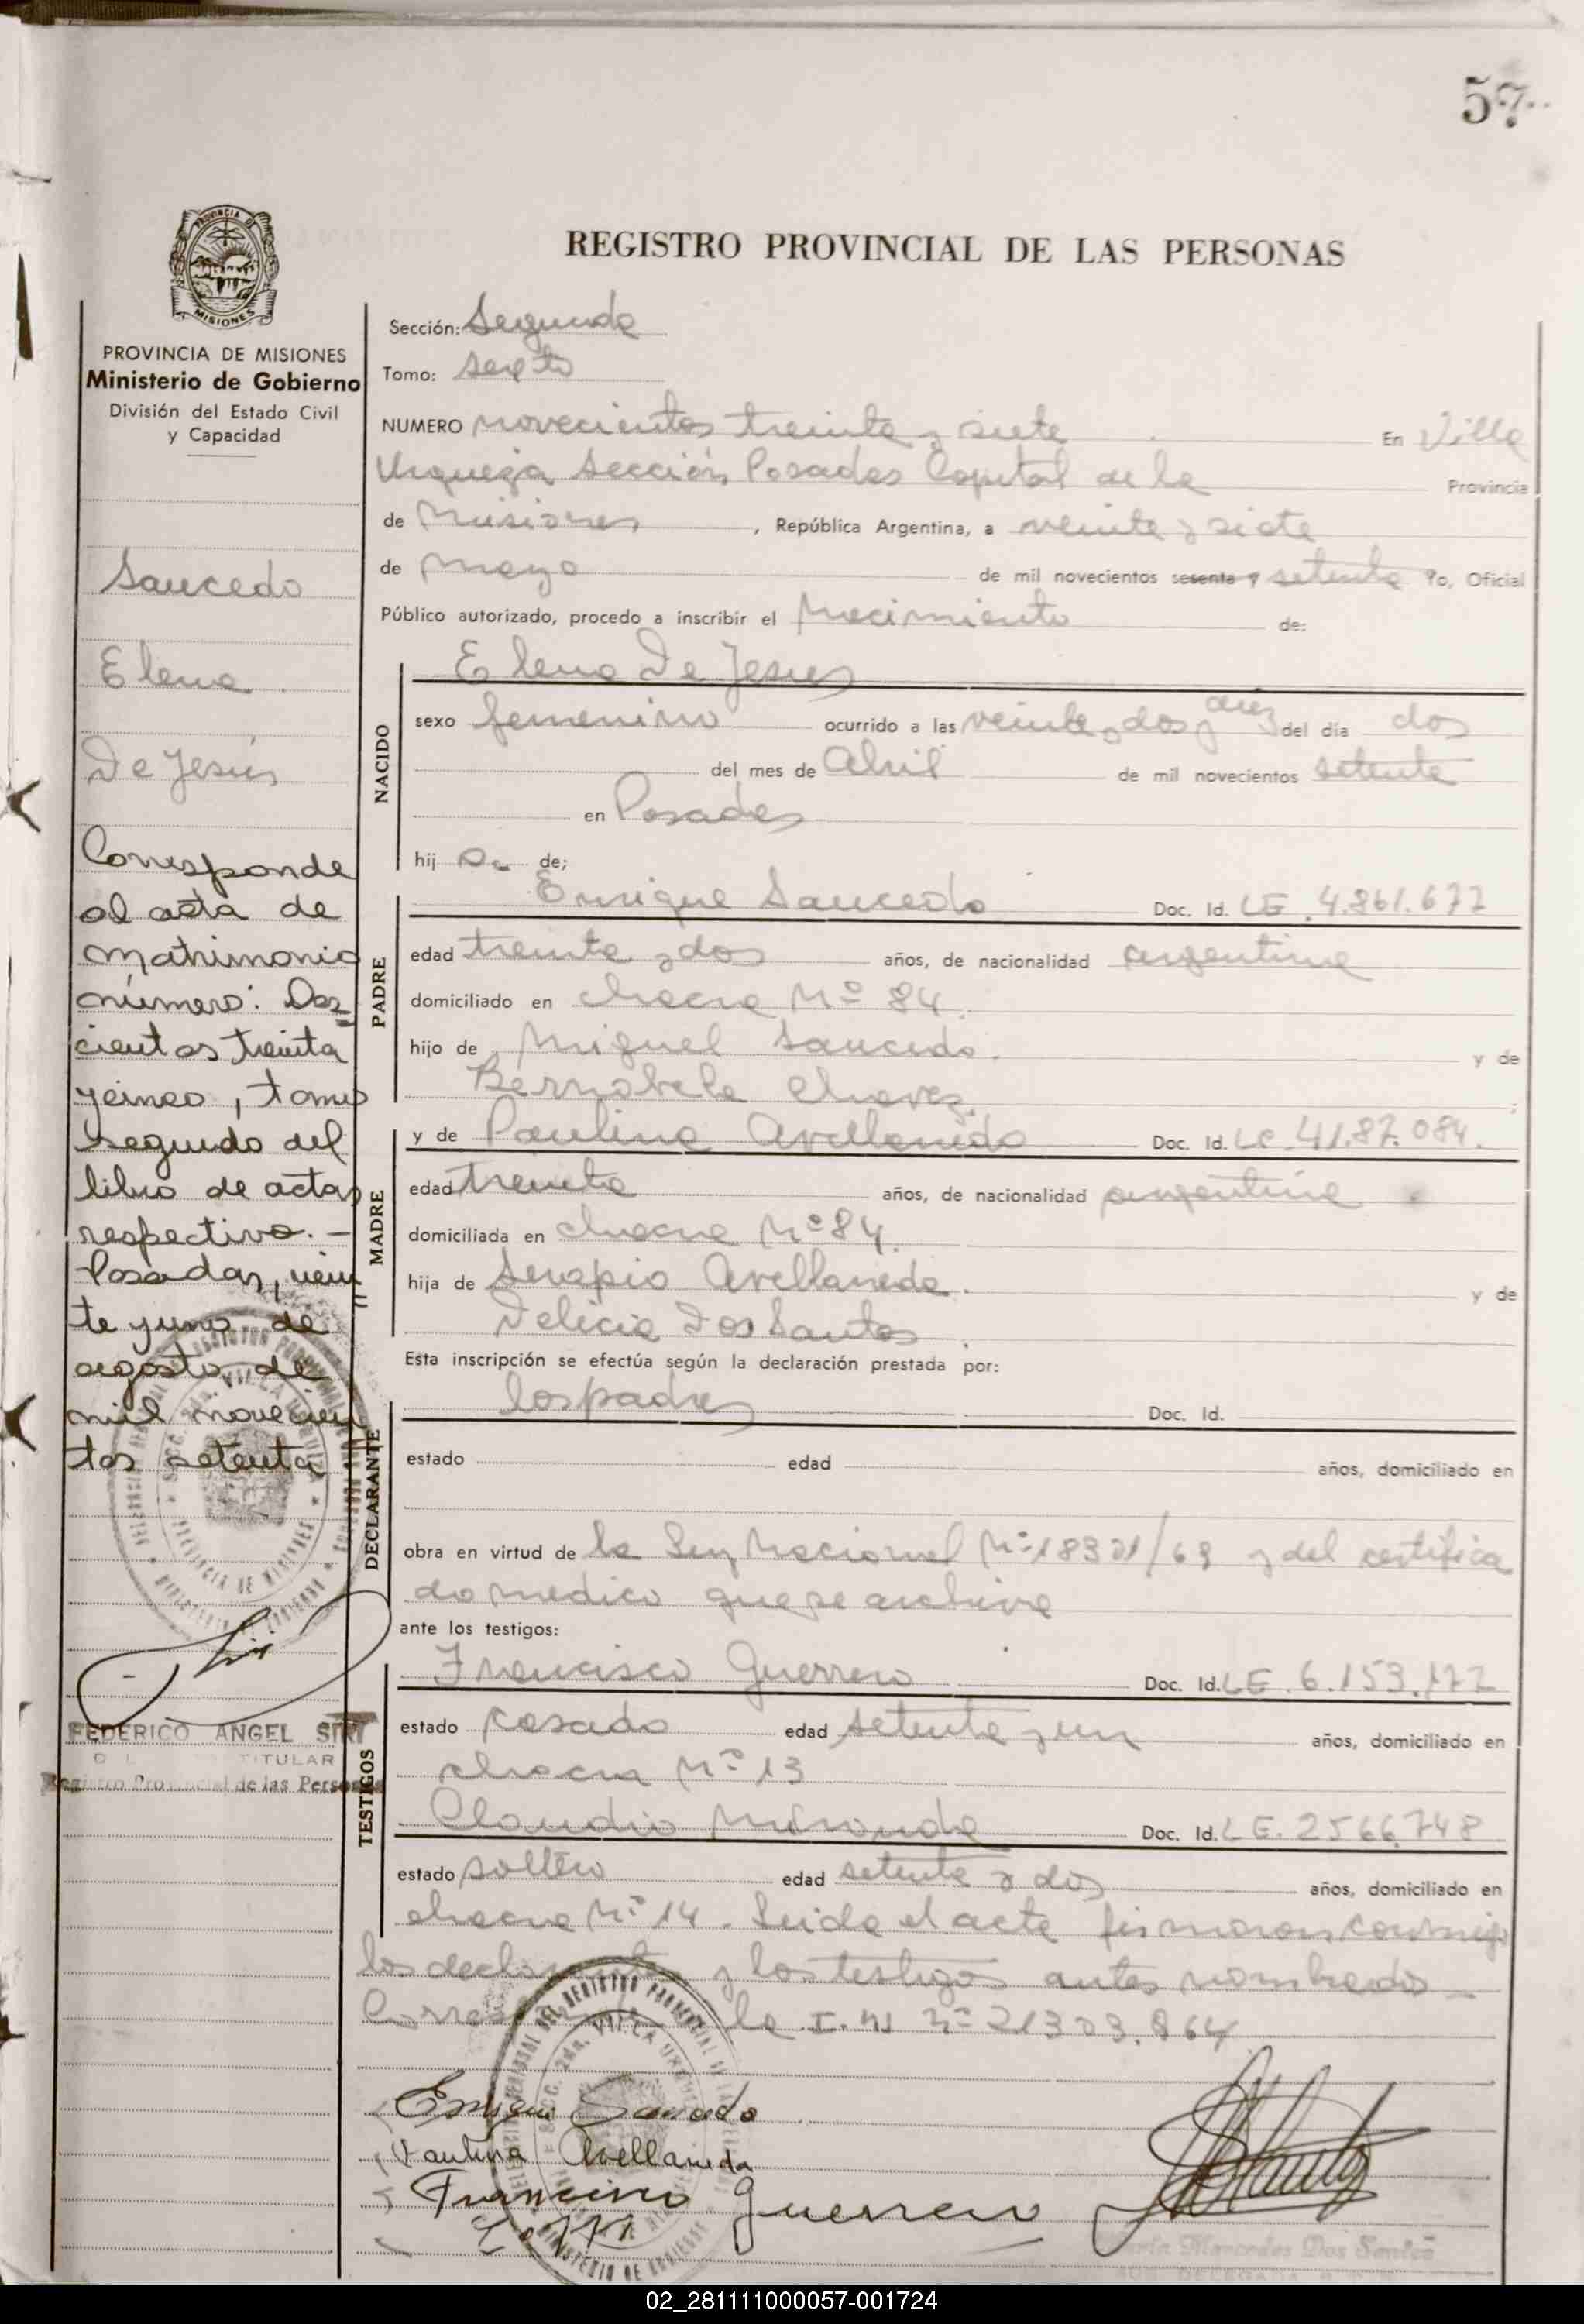 57
REGISTRO PROVINCIAL DE LAS PERSONAS
PROVINCIA DE MISIONES
Ministerio de Gobierno
División del Estado Civil
y Capacidad
Saucedo
Elena
De Jesús
Corresponde
al acta de
matrimonio
número: Dos
cientos treinta
y cinco, tomo
segundo del
libro de actas
respectivo. -
Posadas, vein
te y uno de
agosto de
mil novecien
tos setenta
FEDERICO ANGEL
TITULAR
Registro Provincial de las Personas
Sección: Segunda
Tomo: sexto
NUMERO novecientos treinta y siete En Villa
Urquiza Sección Posadas Capital de la Provincia
de Misiones, República Argentina, a veinte y siete
de mayo de mil novecientos sesenta y setenta Yo, Oficial
Público autorizado, procedo a inscribir el Nacimiento de:
NACIDO
Elena De Jesus
sexo femenino ocurrido a las veinte y dos y diez del día dos
del mes de Abril de mil novecientos setenta
en Posadas
hij a. de;
PADRE
Enrique Saucedo Doc. Id. LE 4.861.677
edad treinta y dos años, de nacionalidad argentina
domiciliado en chacra Nº 84.
hijo de Miguel Saucedo. y de
Bernabela Chavez. ;
MADRE
y de Paulina Avellaneda Doc. Id. LC 41.87.084.
edad treinta años, de nacionalidad argentina
domiciliada en chacra Nº 84.
hija de Serapio Avellaneda. y de
Delicia Dos Santos
Esta inscripción se efectúa según la declaración prestada por:
DECLARANTE
los padres Doc. Id.
estado edad años, domiciliado en
obra en virtud de la Ley Nacional Nº 18327/69 y del certifica
do medico que se archiva
ante los testigos:
TESTIGOS
Francisco Guerrero Doc. Id. LE. 6.153.172
estado casado edad setenta y un años, domiciliado en
chacra Nº 13
Claudio Miranda Doc. Id. LE. 2566.748
estado soltero edad setenta y dos años, domiciliado en
chacra Nº 14. Leida el acta firmaron conmigo
los declarantes y los testigos antes nombrados
la I. N Nº 21303.964
Enrique Saucedo
Paulina Avellaneda
Francisco Guerrero
Maria Mercedes Dos Santos
02_281111000057-001724